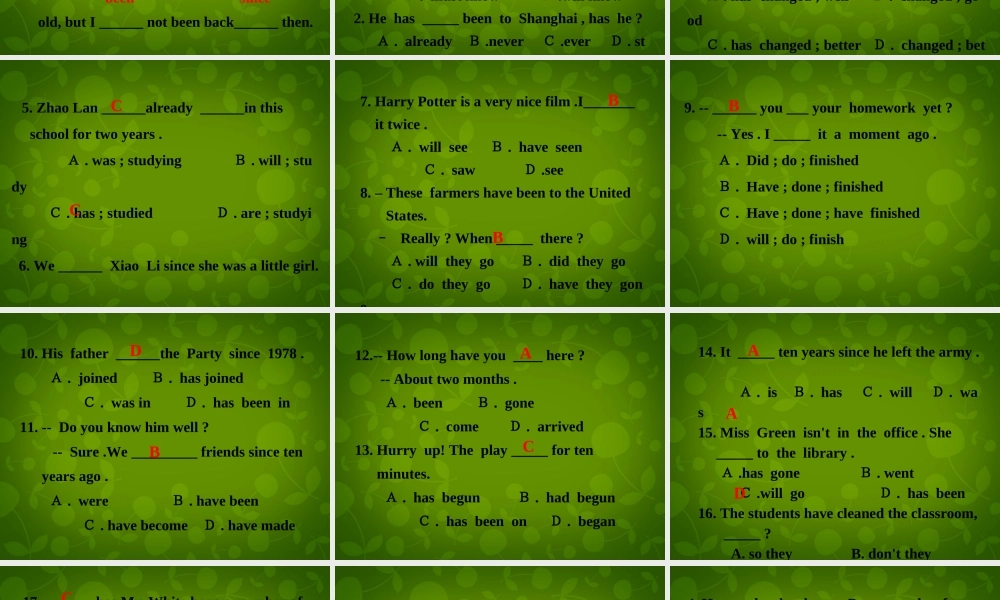 been since
old, but I ______ not been back______ then.
2. He has _____ been to Shanghai , has he ?
A . already B .never C .ever D . st
od
C . has changed ; better D . changed ; bet
5. Zhao Lan ___C___already ______in this
school for two years .
A . was ; studying B . will ; stu
dy
C
C . has ; studied D . are ; studyi
ng
6. We ______ Xiao Li since she was a little girl.
7. Harry Potter is a very nice film .I___B____
it twice .
A . will see B . have seen
C . saw D .see
8. – These farmers have been to the United
States.
– Really ? When B_____ there ?
A . will they go B . did they go
C . do they go D . have they gon
9. -- ___B___ you ___ your homework yet ?
-- Yes . I _____ it a moment ago .
A . Did ; do ; finished
B . Have ; done ; finished
C . Have ; done ; have finished
D . will ; do ; finish
10. His father __D___the Party since 1978 .
A . joined B . has joined
C . was in D . has been in
11. -- Do you know him well ?
-- Sure .We __B_______ friends since ten
years ago .
A . were B . have been
C . have become D . have made
12.-- How long have you _A__ here ?
-- About two months .
A . been B . gone
C . come D . arrived
13. Hurry up! The play __C__ for ten
minutes.
A . has begun B . had begun
C . has been on D . began
14. It __A__ ten years since he left the army .
A . is B . has C . will D . wa
s
A
15. Miss Green isn't in the office . She
_____ to the library .
A .has gone B . went
D
C .will go D . has been
16. The students have cleaned the classroom,
_____ ?
A. so they B. don't they